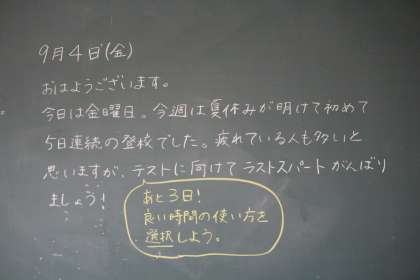 9月4日(金)
おはようございます。
今日は金曜日。今週は夏休みが明けて初めて
5日連続の登校でした。疲れている人も多いと
思いますが、テストに向けてラストスパートがんばり
ましょう!
あと3日!
良い時間の使い方を
選択しよう。